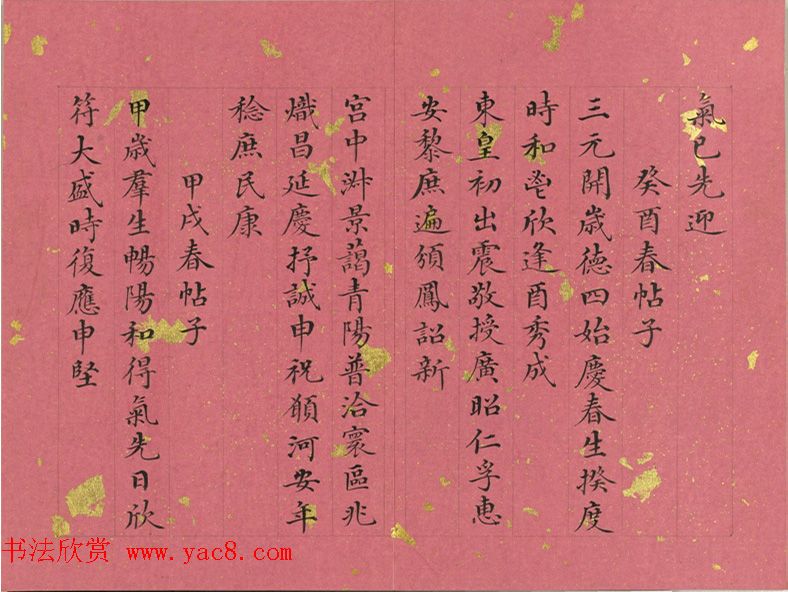 氣已先迎
癸酉春帖子
三元開歲德四始慶春生揆度
時和鬯欣逢酉秀成
東皇初出震敬授廣昭仁孚惠
安黎庶遍頒鳳詔新
宮中淑景藹青陽普洽寰區兆
熾昌延慶抒誠申祝願河安年
稔庶民康
甲戌春帖子
甲歲羣生暢陽和得氣先日欣
符大盛時復應申堅
书法欣赏 www.yac8.com